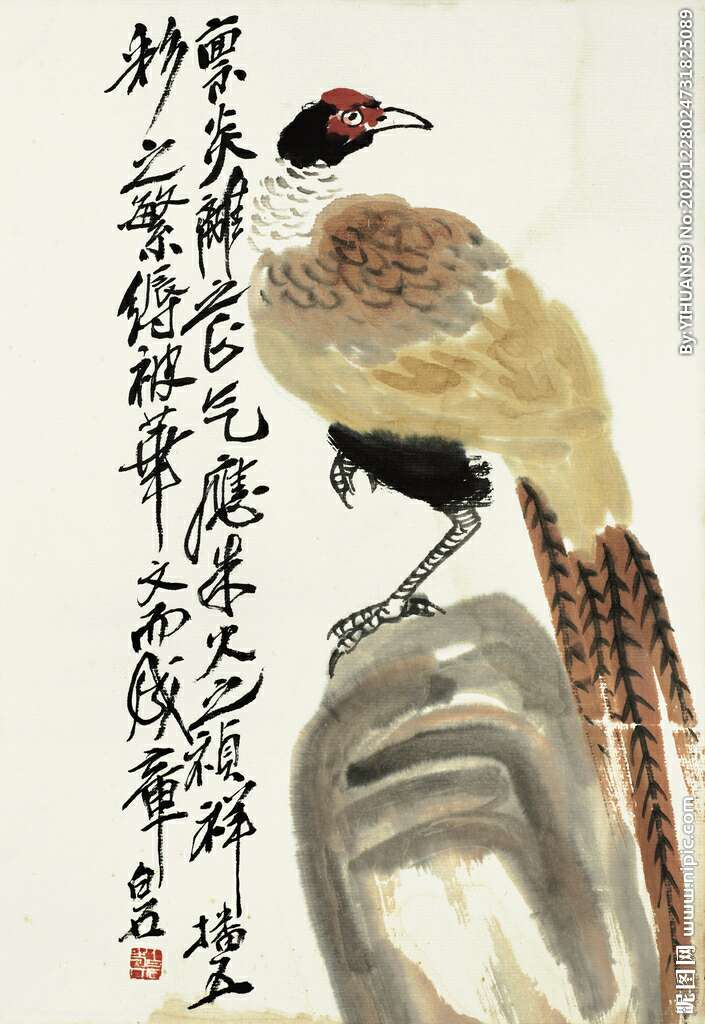 禀炎離之㐮气應朱火之禎祥播五
彩之繁縟被華文而成章
白石
By:YIHUAN99 No.20201228024731825089
昵图网 www.nipic.com